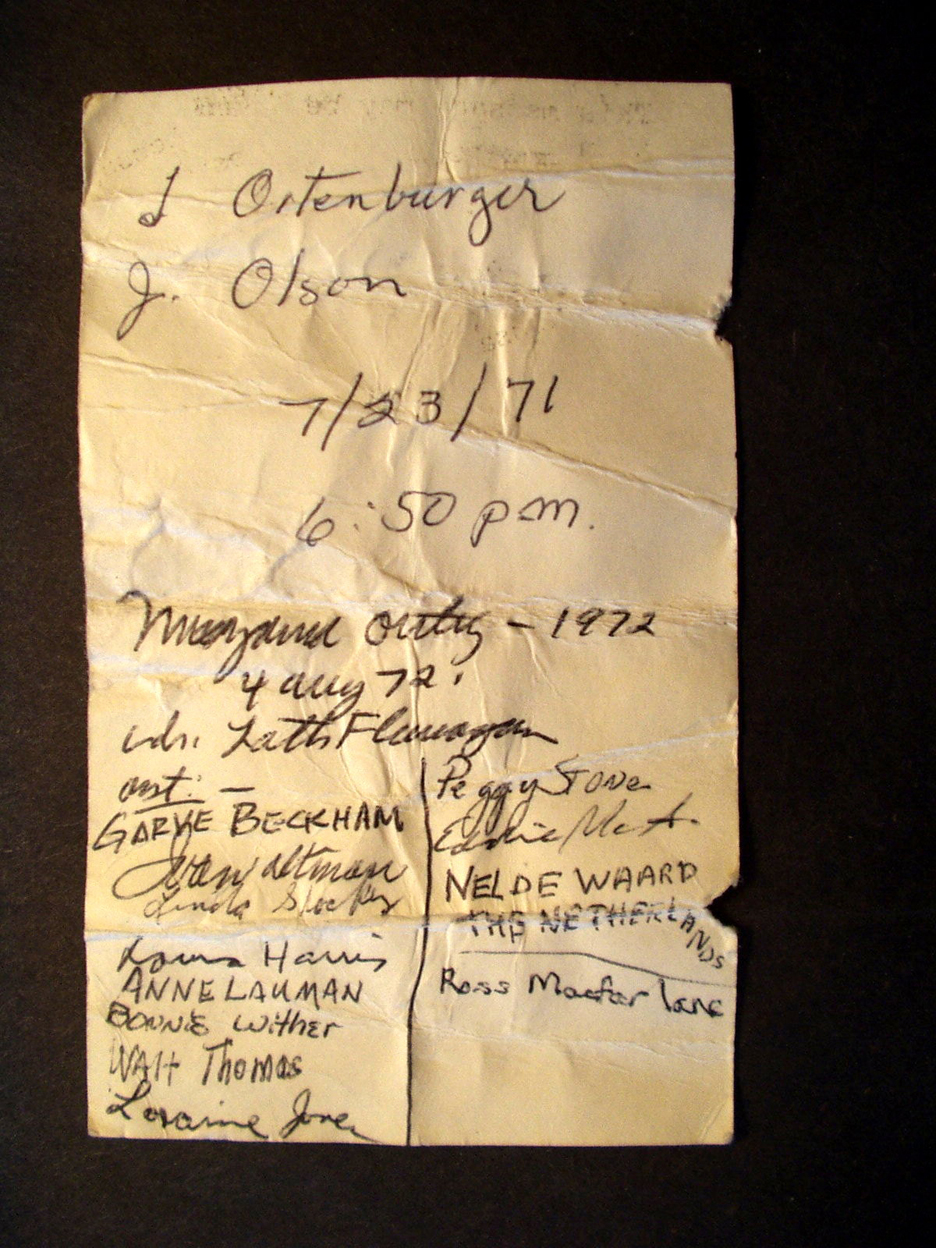 J Ortenburger
J. Olson
7/23/71
6:50 pm.
outing - 1972
4 aug 72.
Ldr. Flanagan
asst: -
GARYE BECKHAM
Altman
Linda
Lorna Harris
ANNE LAUMAN
BONNIE Wither
Walt Thomas
Loraine Jones
Peggy Stone
Eddie
NEL DE WAARD
THE NETHERLANDS
Ross Macfarlane